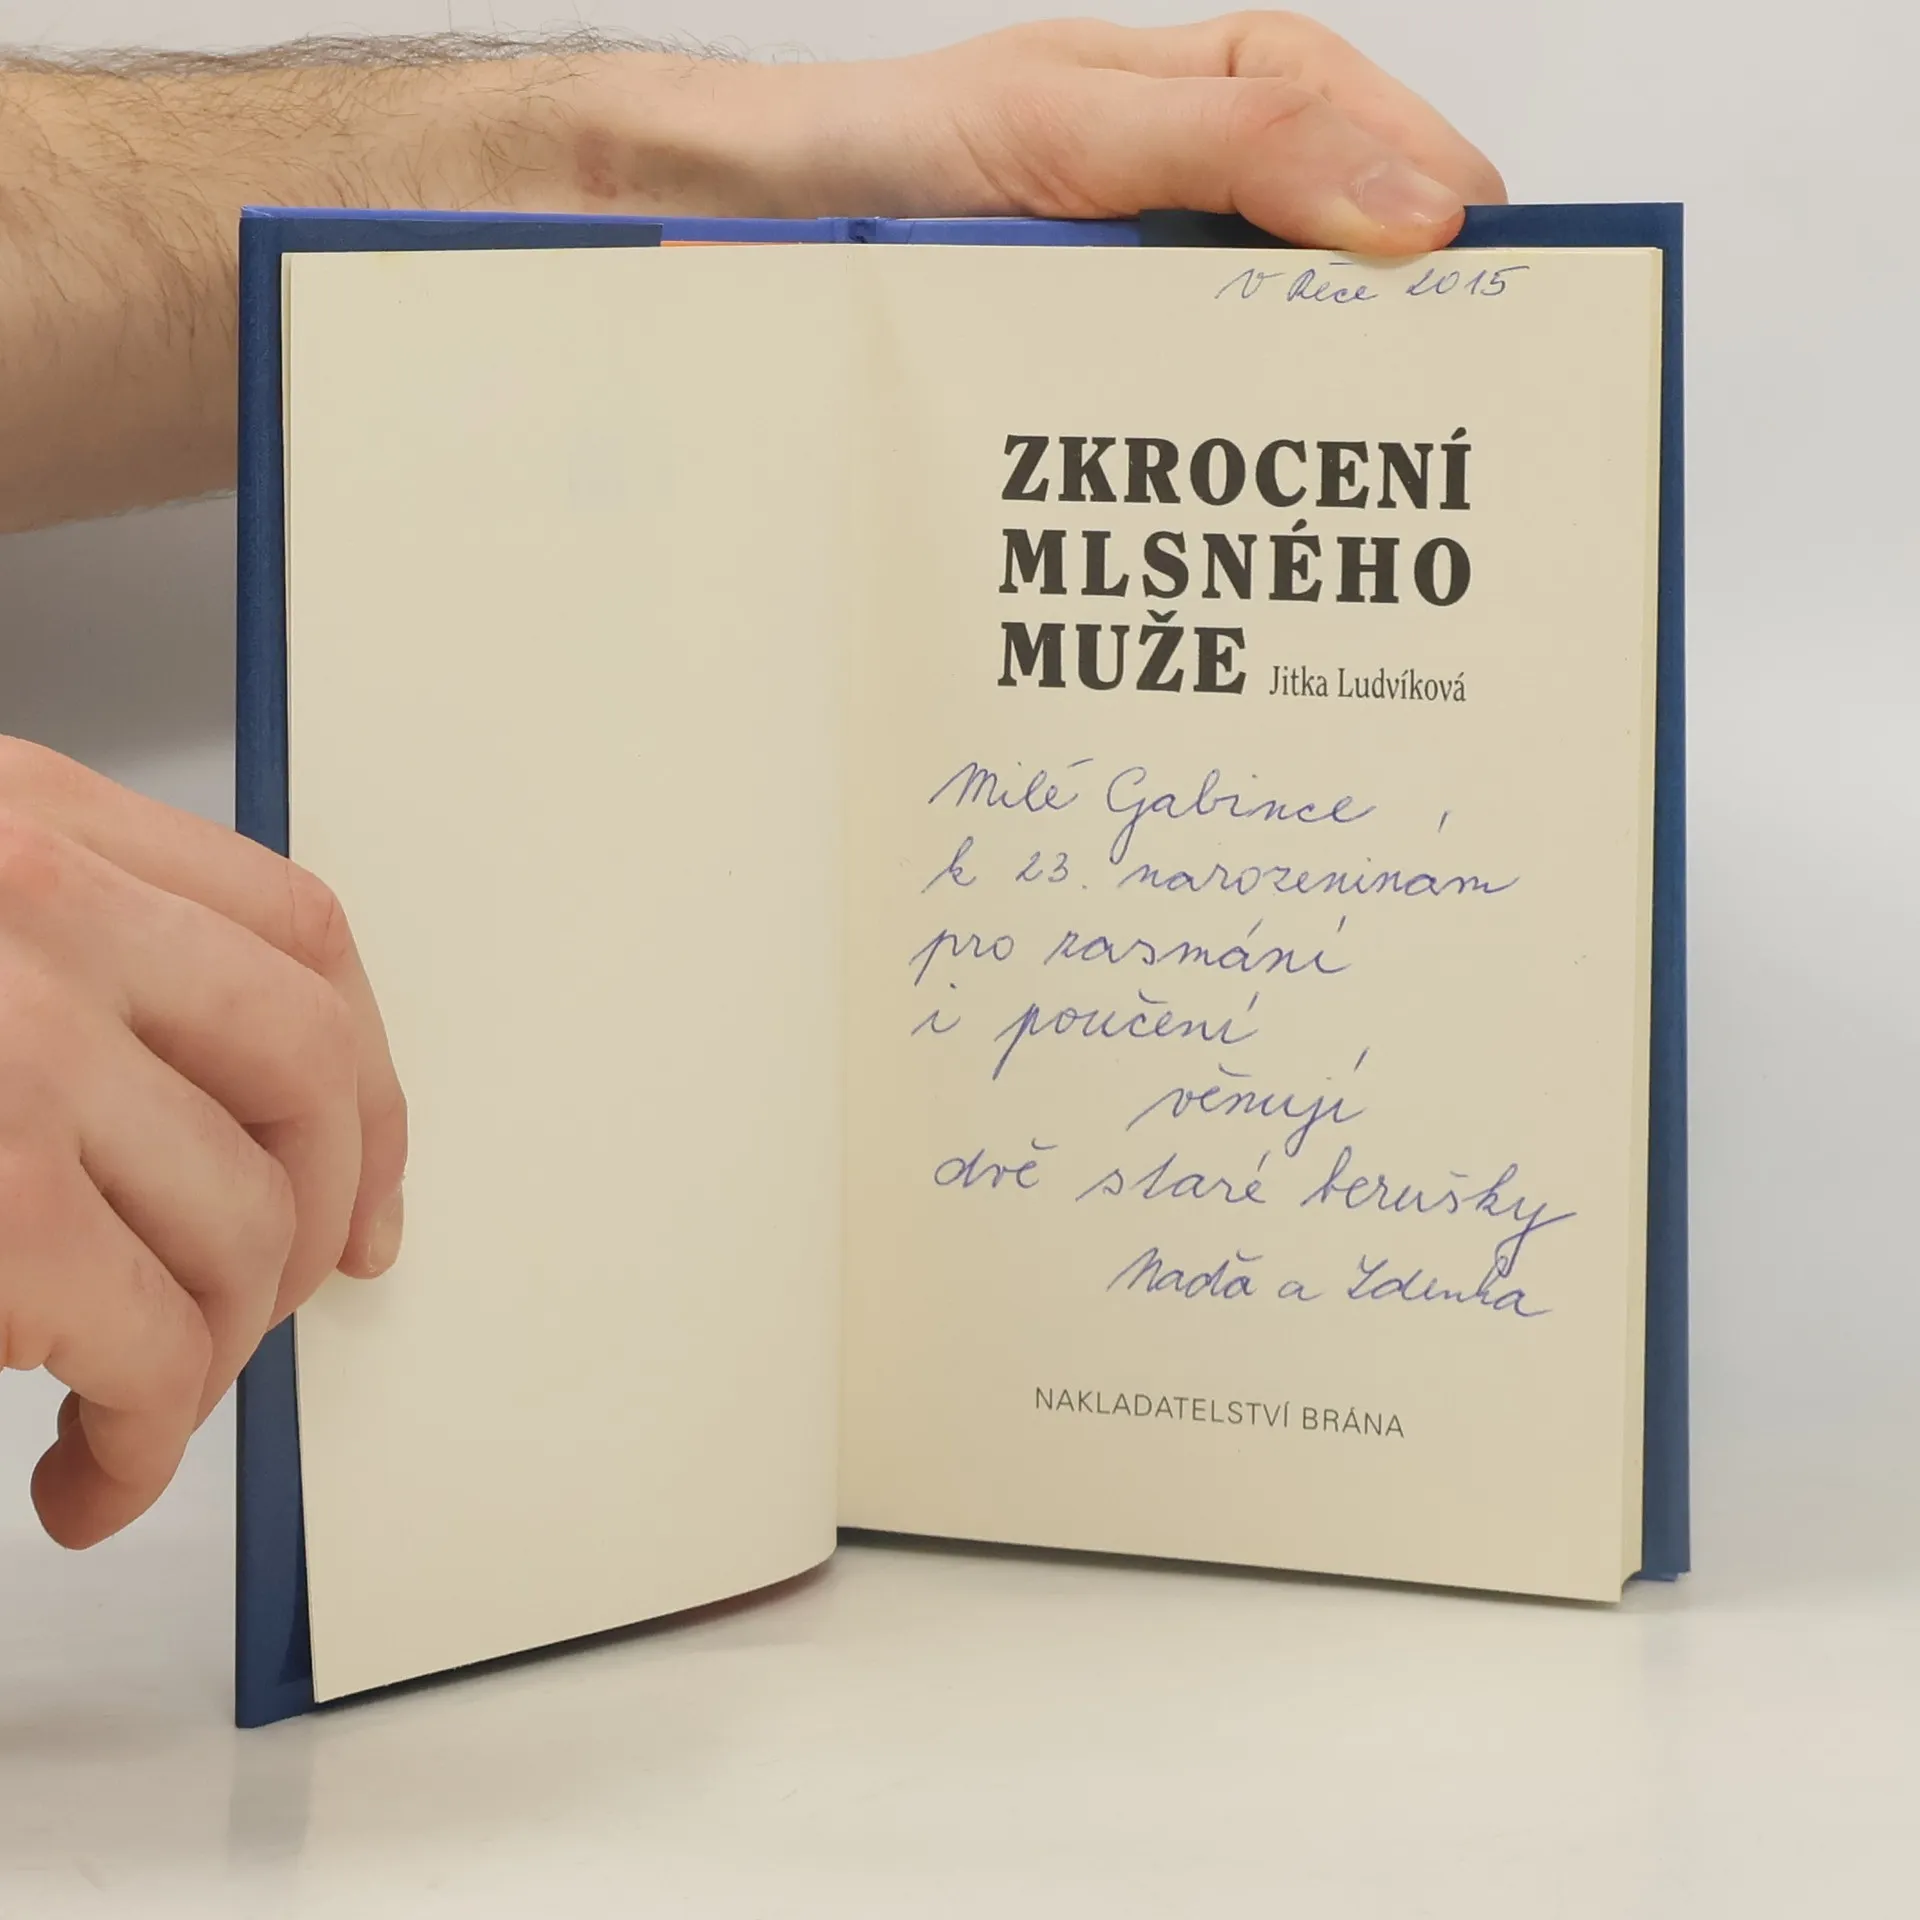 V Děče 2015
ZKROCENÍ
MLSNÉHO
MUŽE Jitka Ludvíková
Milé Gabince
k 23. narozeninám
pro zasmání
i poučení
věnují
dvě staré berušky
Naďa a Zdenka
NAKLADATELSTVÍ BRÁNA